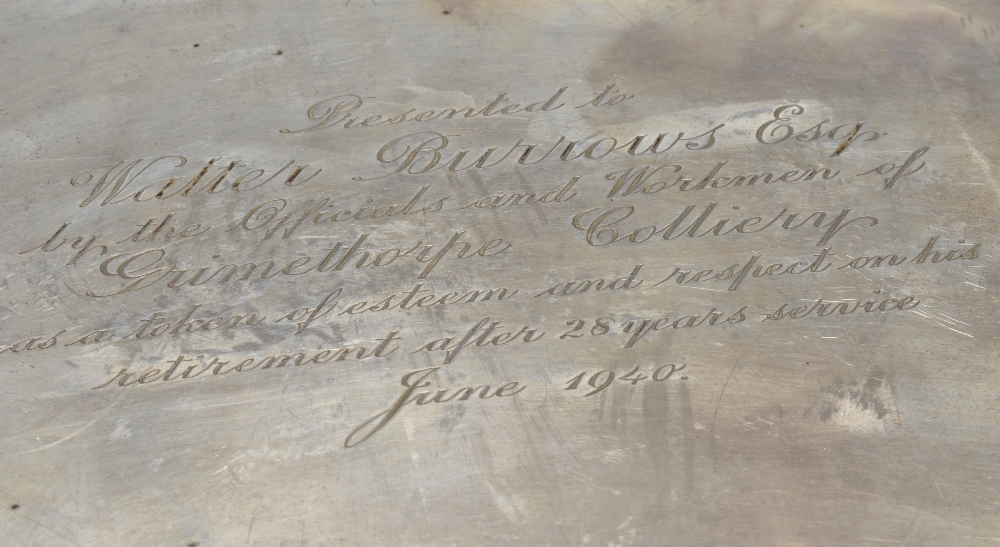 Presented to
Walter Burrows Esq.
by the Officials and Workmen of
Grimethorpe Colliery
as a token of esteem and respect on his
retirement after 28 years service
June 1940.